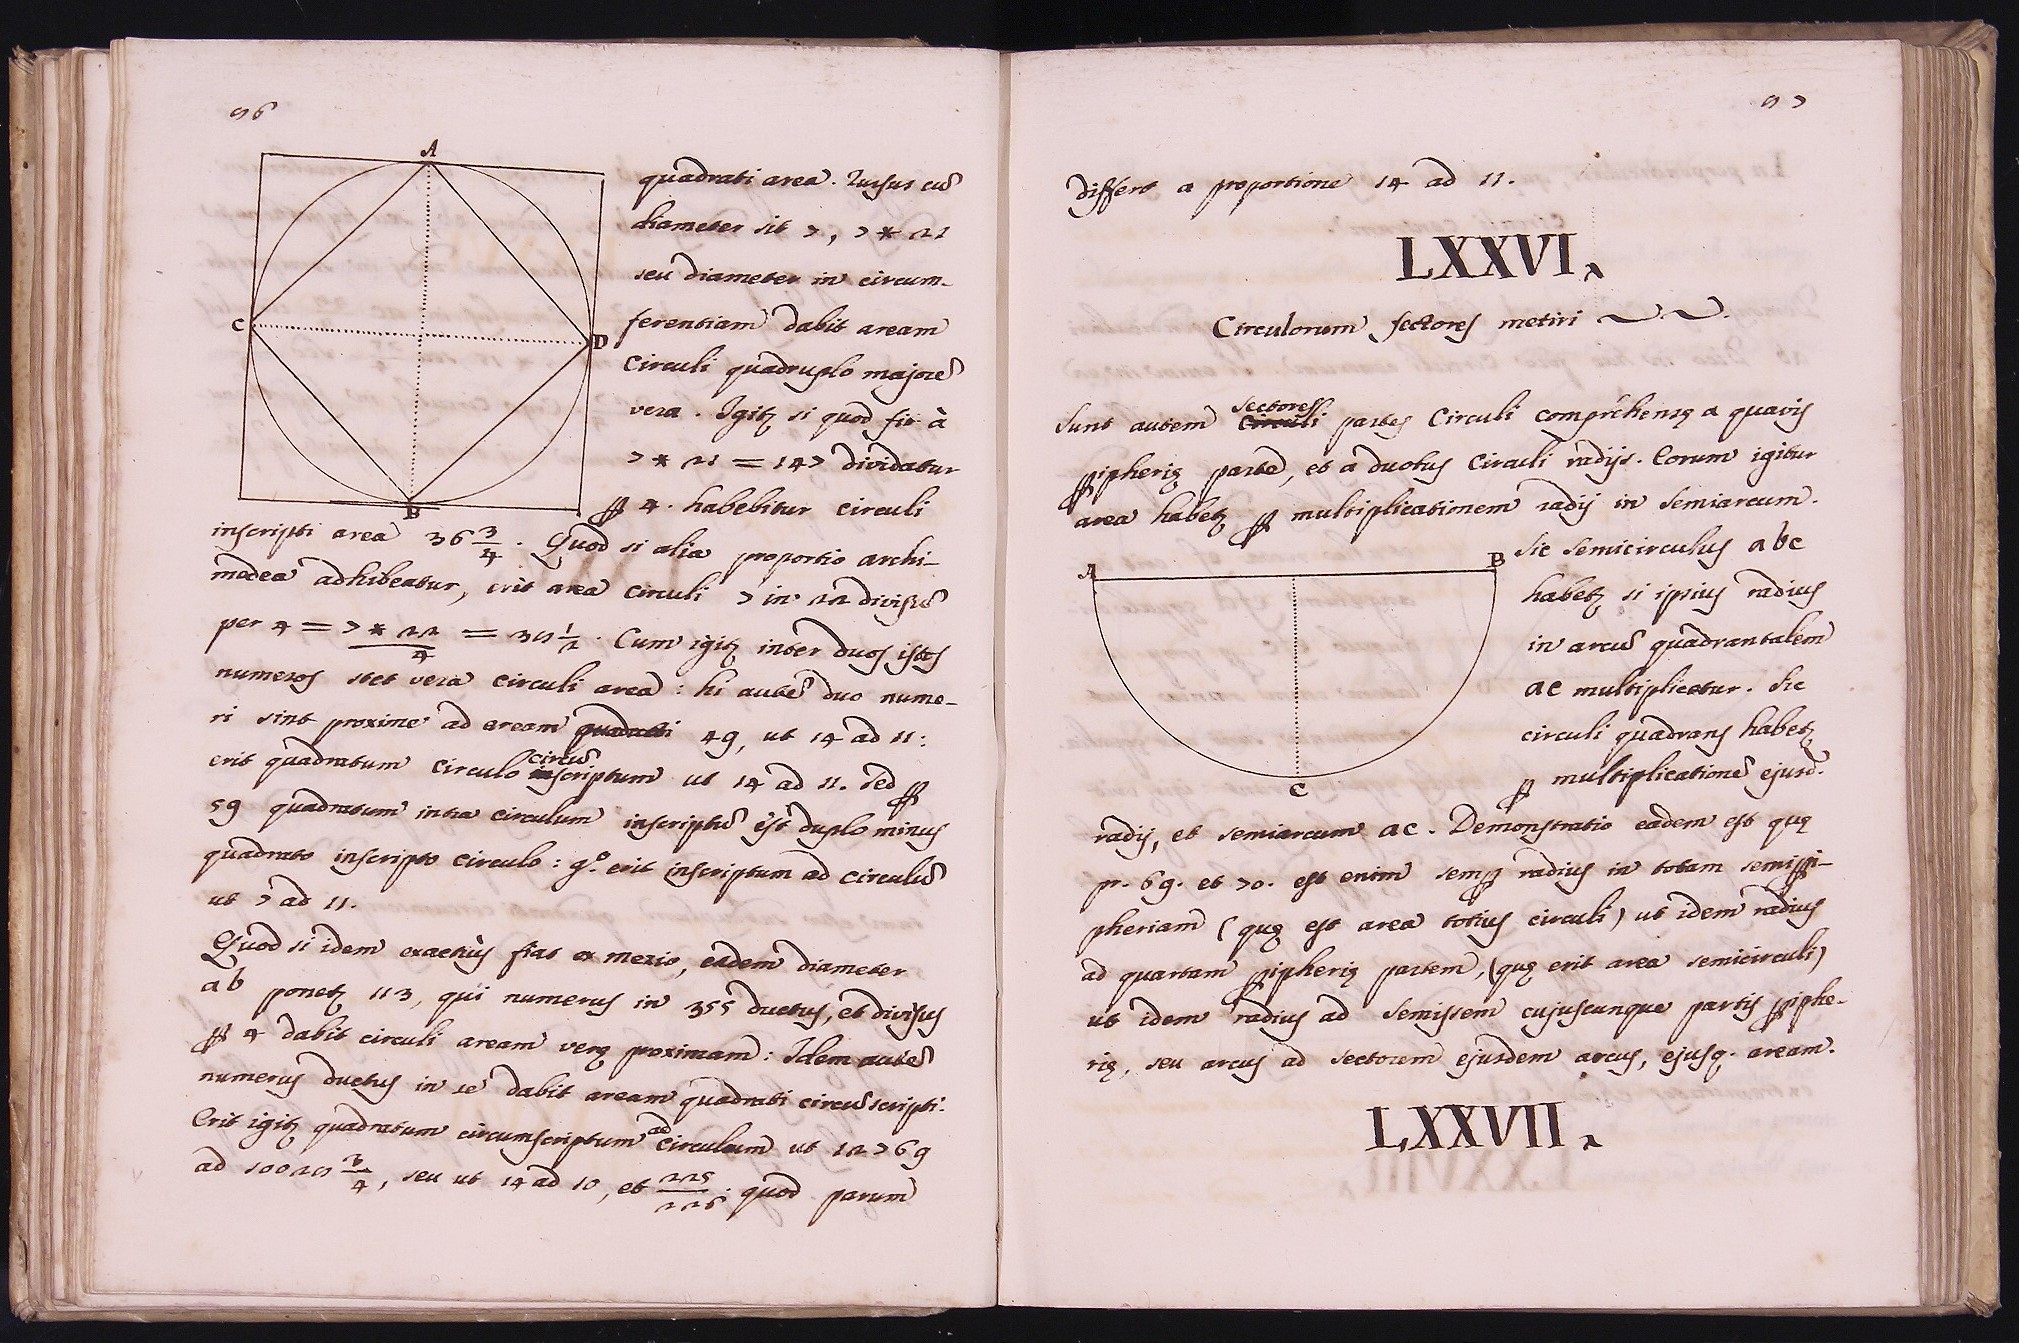 96
A
C
D
B
quadrati area. Rursus cū
diameter sit 7, 7 * 21
seu diameter in circum-
ferentiam dabit aream
circuli quadruplo majorē
vera. Igitꝫ si quod fit à
7 * 21 = 147 dividatur
ꝑ 4. habebitur circuli
inscripti area 36 3/4. Quod si alia proportio archi-
medea adhibeatur, erit area circuli 7 in 22 divisū
per 4 = 7 * 22 / 4 = 38 1/2. Cum igitꝫ inter duos istos
numeros stet vera circuli area: hi autē duo nume-
ri sint proxime ad aream quadrati 49, ut 14 ad 11:
erit quadratum circulo circūscriptum ut 14 ad 11. Sed ꝑ
59 quadratum intra circulum inscriptū est duplo minus
quadrato inscripto circulo: gº. erit inscriptum ad circulū
ut 7 ad 11.
Quod si idem exactius fiat ex merio, eadem diameter
ab ponetꝫ 113, qui numerus in 355 ductus, et divisus
ꝑ 4 dabit circuli aream verę proximam: Idem autē
numerus ductus in se dabit aream quadrati circūscripti.
Erit igitꝫ quadratum circumscriptum ad circulum ut 12769
ad 10028 3/4, seu ut 14 ad 10, et 225/226. quod parum
97
differt a proportione 14 ad 11.
LXXVI.
Circulorum sectores metiri
Sunt autem sectores circuli partes circuli comprehensę a quavis
ꝑipherię parte, et a duobus circuli radijs. Eorum igitur
area habetꝫ ꝑ multiplicationem radij in semiarcum.
A
B
C
Sic semicirculus abc
habetꝫ si ipsius radius
in arcū quadrantalem
ac multiplicetur. Sic
circuli quadrans habetꝫ
ꝑ multiplicationē ejusd.
radij, et semiarcum ac. Demonstratio eadem est quę
pr. 69. et 70. est enim semꝑ radius in totam semiꝑi-
pheriam (quę est area totius circuli) ut idem radius
ad quartam ꝑipherię partem, (quę erit area semicirculi)
ut idem radius ad semissem cujuscunque partis ꝑiphe-
rię, seu arcus ad sectorem ejusdem arcus, ejusq. aream.
LXXVII.